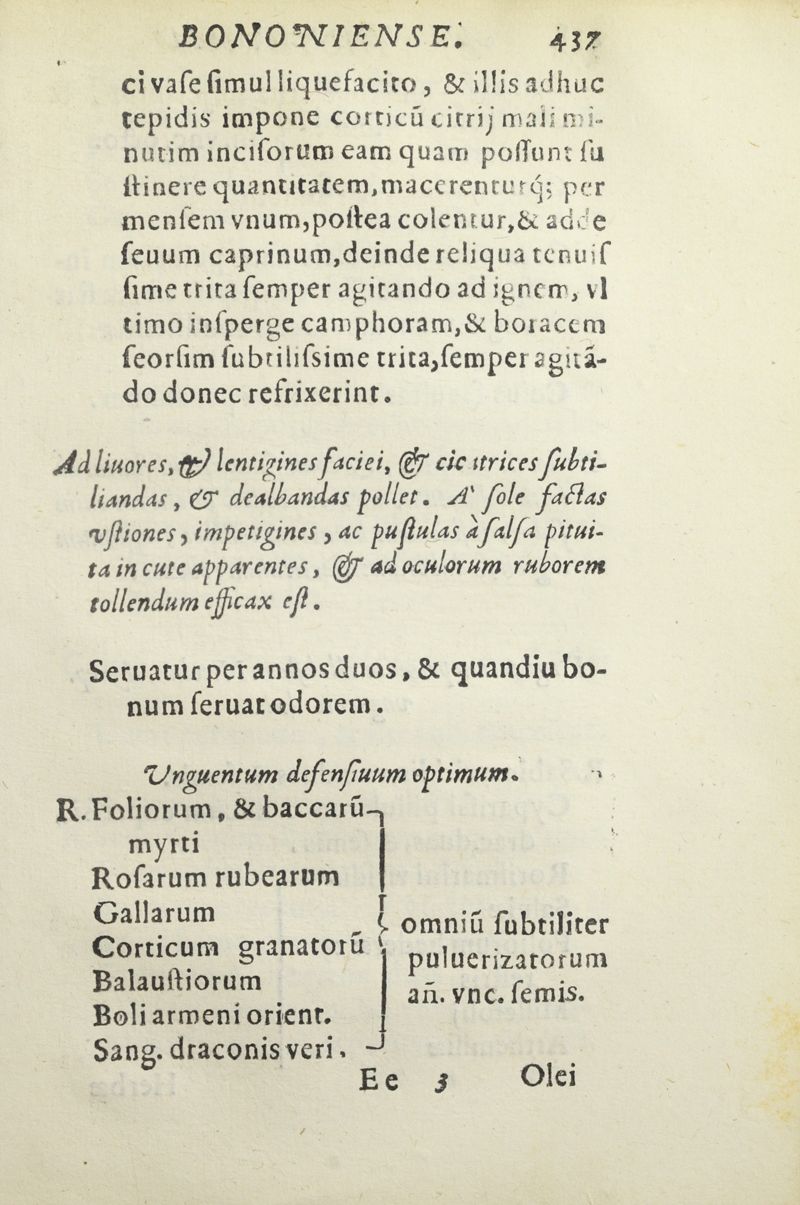 BONONIENSE. 437
ci vase simul liquefacito, & illis adhuc
tepidis impone corticū citrij mali mi-
nutim incisorum eam quam possunt su
stinere quantitatem, macerenturq́; per
mensem vnum, postea colentur, & adde
seuum caprinum, deinde reliqua tenuis
sime trita semper agitando ad ignem, vl
timo insperge camphoram, & boracem
seorsim subtilissime trita, semper agitā-
do donec refrixerint.
Ad liuores, & lentigines faciei, & cicatrices subti-
liandas, & dealbandas pollet. A' sole factas
vstiones, impetigines, ac pustulas à salsa pitui-
ta in cute apparentes, & ad oculorum ruborem
tollendum efficax est.
Seruatur per annos duos, & quandiu bo-
num seruat odorem.
Vnguentum defensiuum optimum.
R. Foliorum, & baccarū
myrti
Rosarum rubearum
Gallarum
Corticum granatorū
Balaustiorum
Boli armeni orient.
Sang. draconis veri.
omniū subtiliter
puluerizatorum
añ. vnc. semis.
Ee 3 Olei